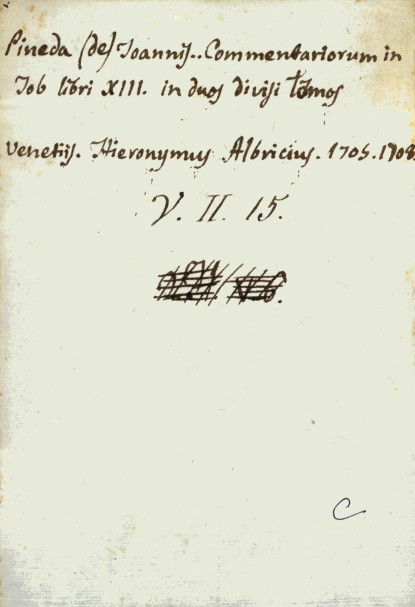 Pineda (de) Joannis.. Commentariorum in
Job libri XIII. in duos divisi tomos
Venetiis. Hieronymus Albricius. 1705.1708.
V. II. 15.
C